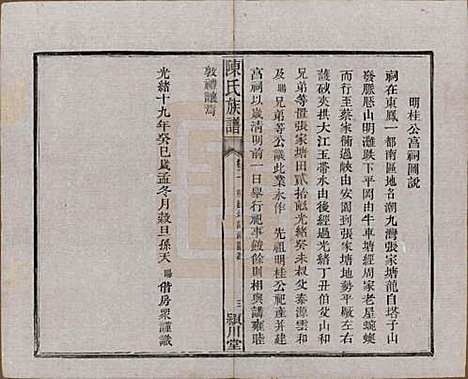 明桂公啚祠圖說
祠在東鳳一都南區地名湖九灣張家塘龍自塔子山
發脈懸山明灘跌下平岡由牛車塘經周家老屋蜿蜒
而行又由安園到張家塘地勢平敞左右
薩砂夾拱大江玉帶水由後經過光緒丁丑伯父山
兄弟等置張家塘田貳拾畝光緒癸未叔父泰源
及賜兄弟等公議此業永作 先祖明桂公祀產并建
啚祠以歲清明前一日舉行祀事餕餘則相與講雍睦
敦禮讓焉
光緒十九年癸巳歲孟冬月穀旦孫天賜偕房眾謹識
陳氏族譜
卷二
三
潁川堂